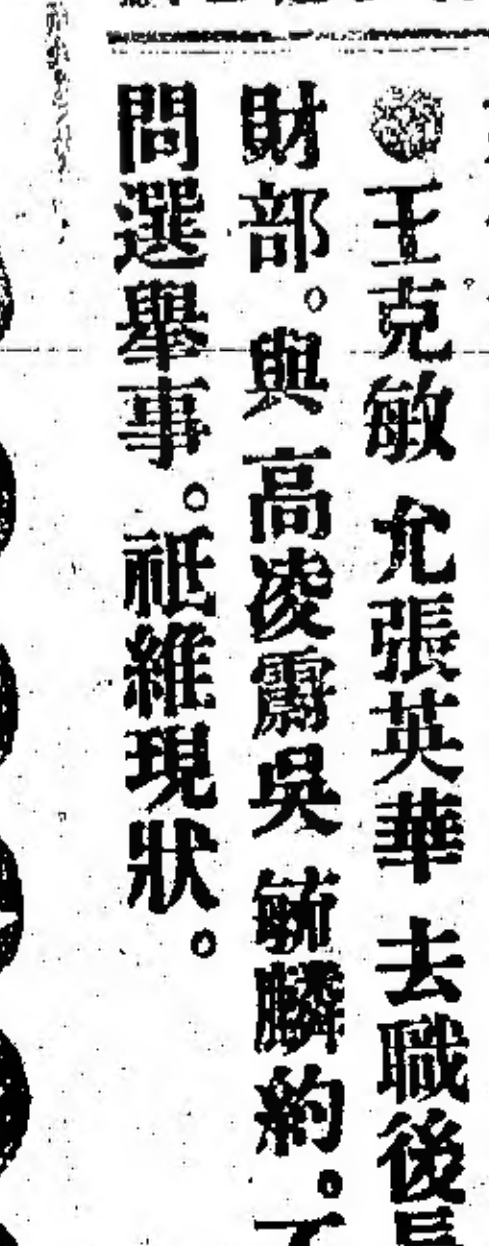 ●王克敏允張英華去職後長
財部。與高凌霨吳毓麟約。不
問選舉事。祇維現狀。